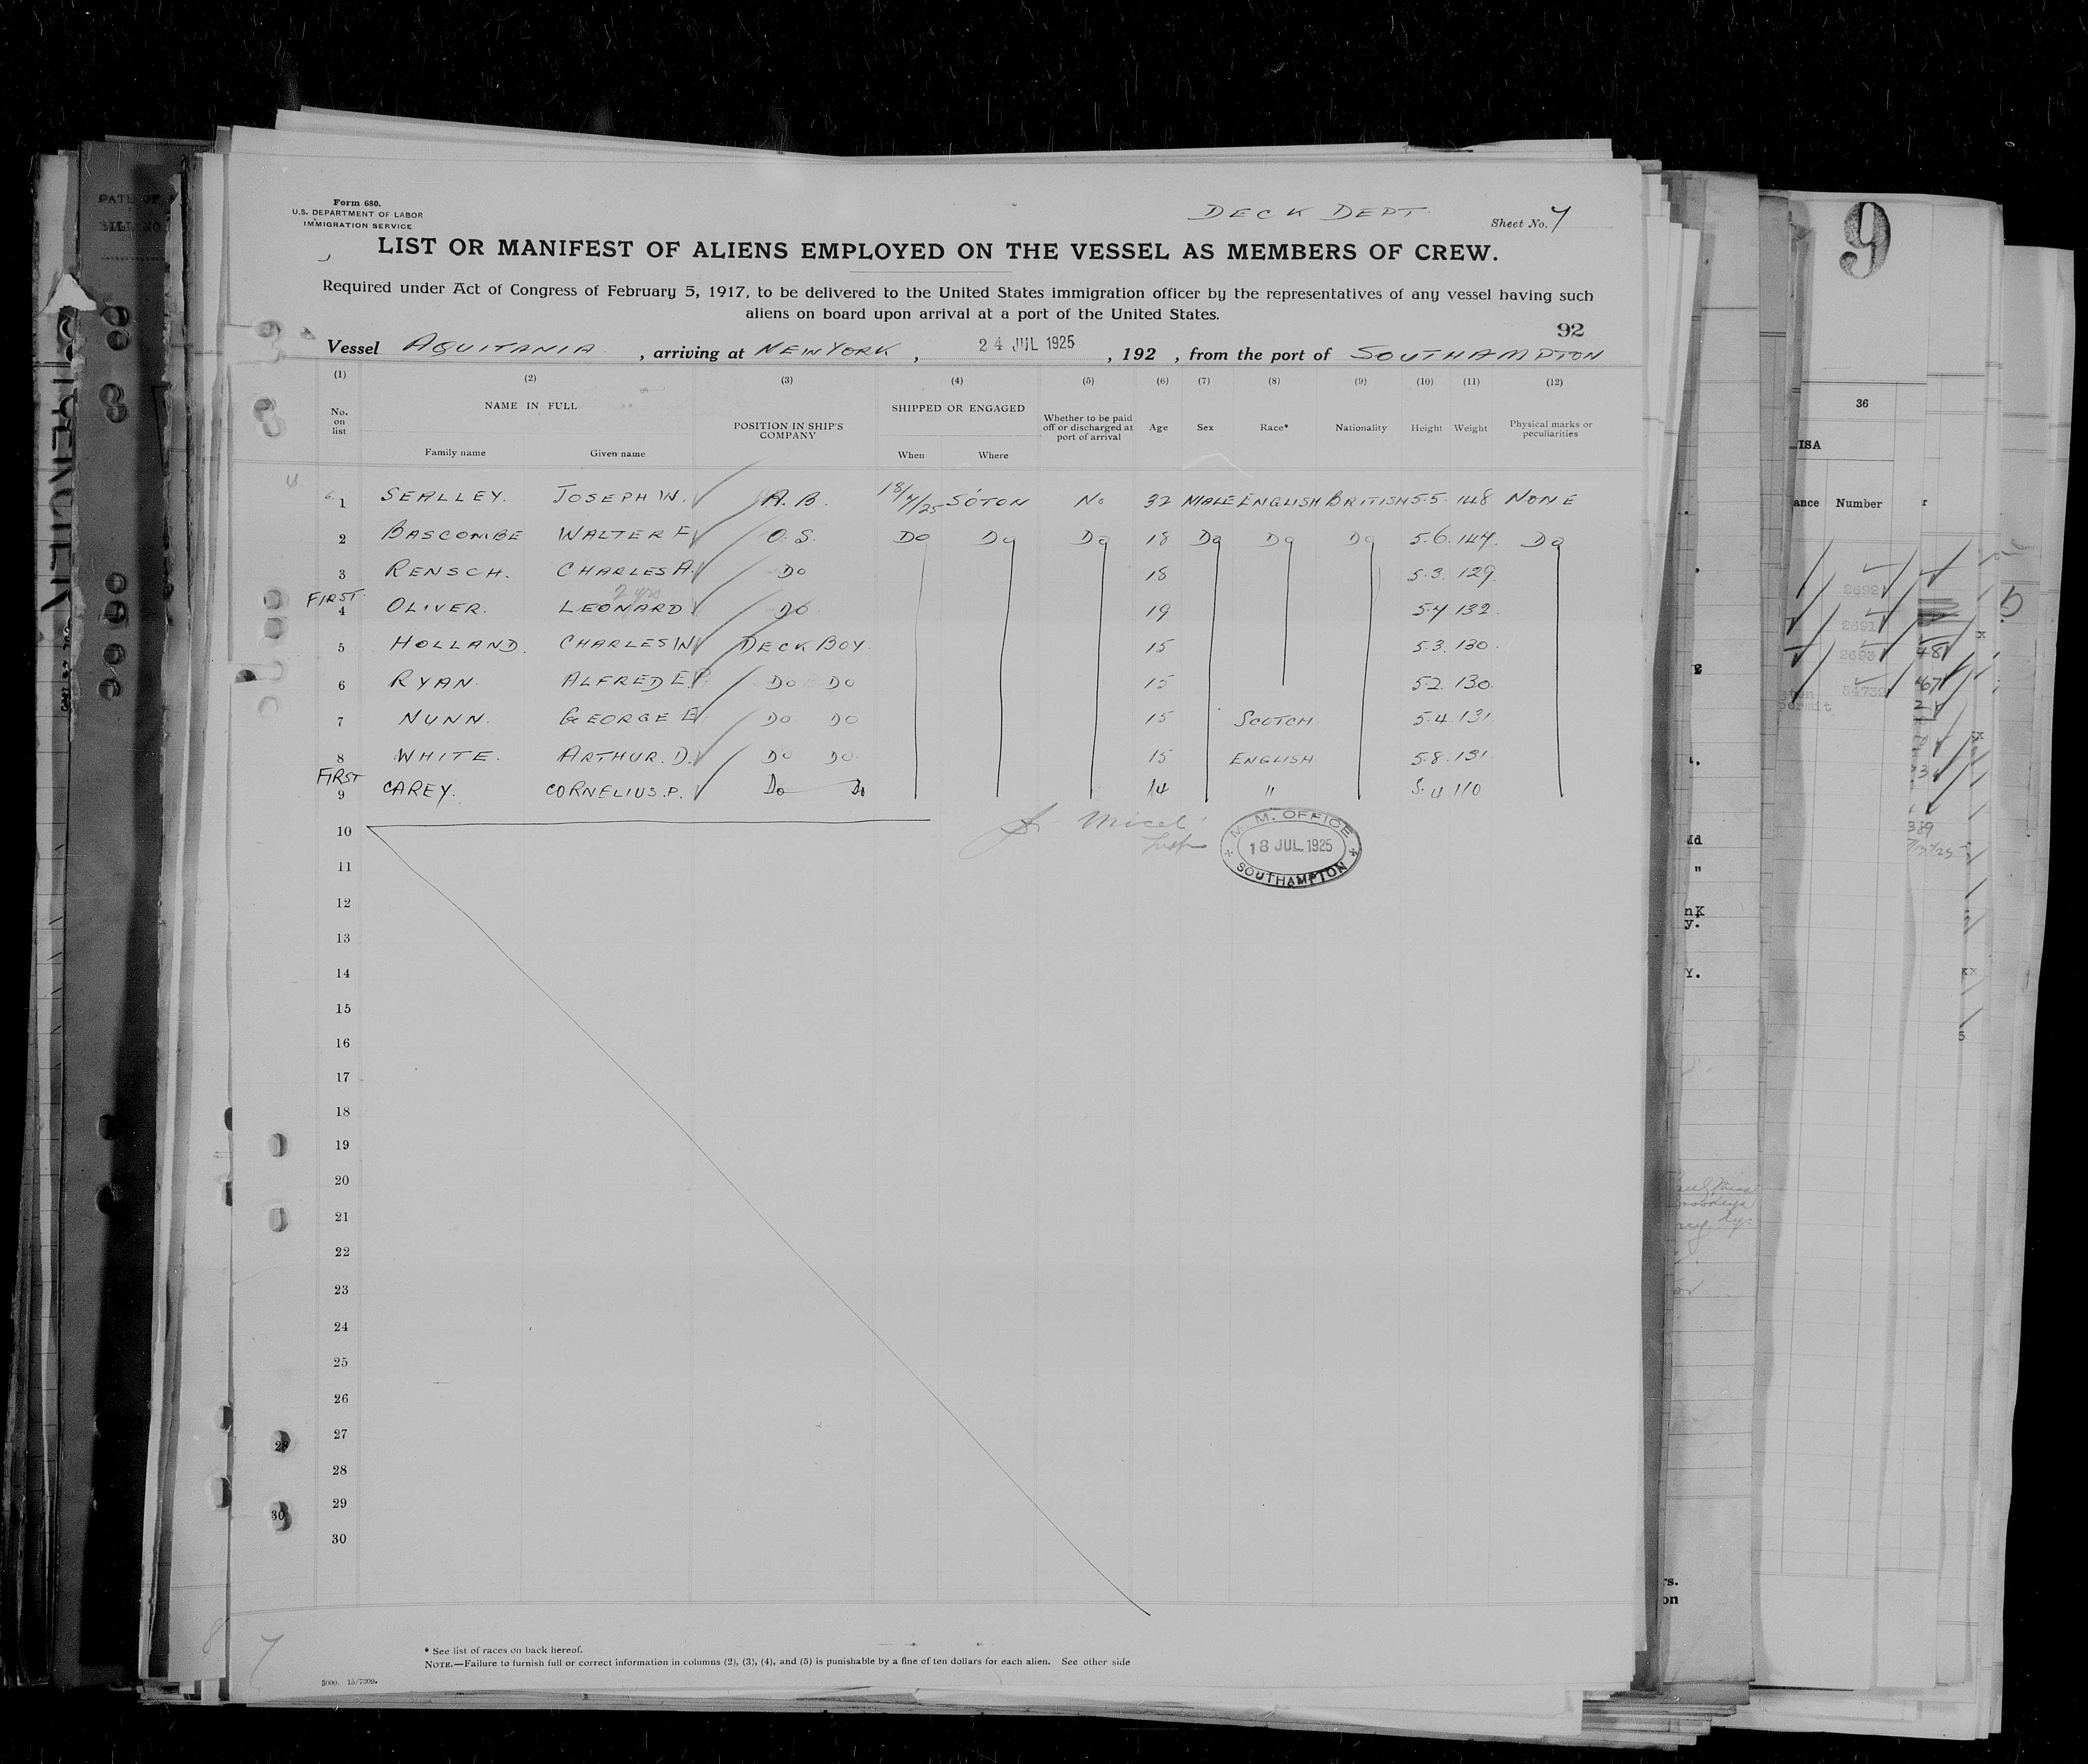 Form 680.
U.S. DEPARTMENT OF LABOR
IMMIGRATION SERVICE
DECK DEPT.
Sheet No. 7
LIST OR MANIFEST OF ALIENS EMPLOYED ON THE VESSEL AS MEMBERS OF CREW.
Required under Act of Congress of February 5, 1917, to be delivered to the United States immigration officer by the representatives of any vessel having such
aliens on board upon arrival at a port of the United States.
92
Vessel AQUITANIA, arriving at NEW YORK, 24 JUL 1925, 192 , from the port of SOUTHAMPTON
(1) (2) (3) (4) (5) (6) (7) (8) (9) (10) (11) (12)
No. on list NAME IN FULL Family name Given name POSITION IN SHIP'S COMPANY SHIPPED OR ENGAGED When Where Whether to be paid off or discharged at port of arrival Age Sex Race* Nationality Height Weight Physical marks or peculiarities
1 SEALLEY. JOSEPH W. A.B. 18/7/25 SOTON No 32 MALE ENGLISH BRITISH 5.5. 148 NONE
2 BASCOMBE WALTER F O.S. Do Do Do 18 Do Do Do 5.6. 147. Do
3 RENSCH. CHARLES A. Do 18 5.3. 129.
2 yrs
FIRST 4 OLIVER. LEONARD Do 19 5.4 132.
5 HOLLAND. CHARLES W DECK BOY. 15 5.3. 130.
6 RYAN. ALFRED E.P. Do Do 15 5.2. 130.
7 NUNN. GEORGE E. Do Do 15 SCOTCH. 5.4. 131.
8 WHITE. ARTHUR. D. Do Do. 15 ENGLISH 5.8. 131.
FIRST 9 CAREY. CORNELIUS. P. Do Do 14 " 5.4 110
10
M. M. OFFICE
18 JUL. 1925
SOUTHAMPTON
11
12
13
14
15
16
17
18
19
20
21
22
23
24
25
26
27
28
29
30
28
30
7
* See list of races on back hereof.
NOTE.—Failure to furnish full or correct information in columns (2), (3), (4), and (5) is punishable by a fine of ten dollars for each alien. See other side
9
36
ISA
ance Number
2692
2691
2693
54732
permit